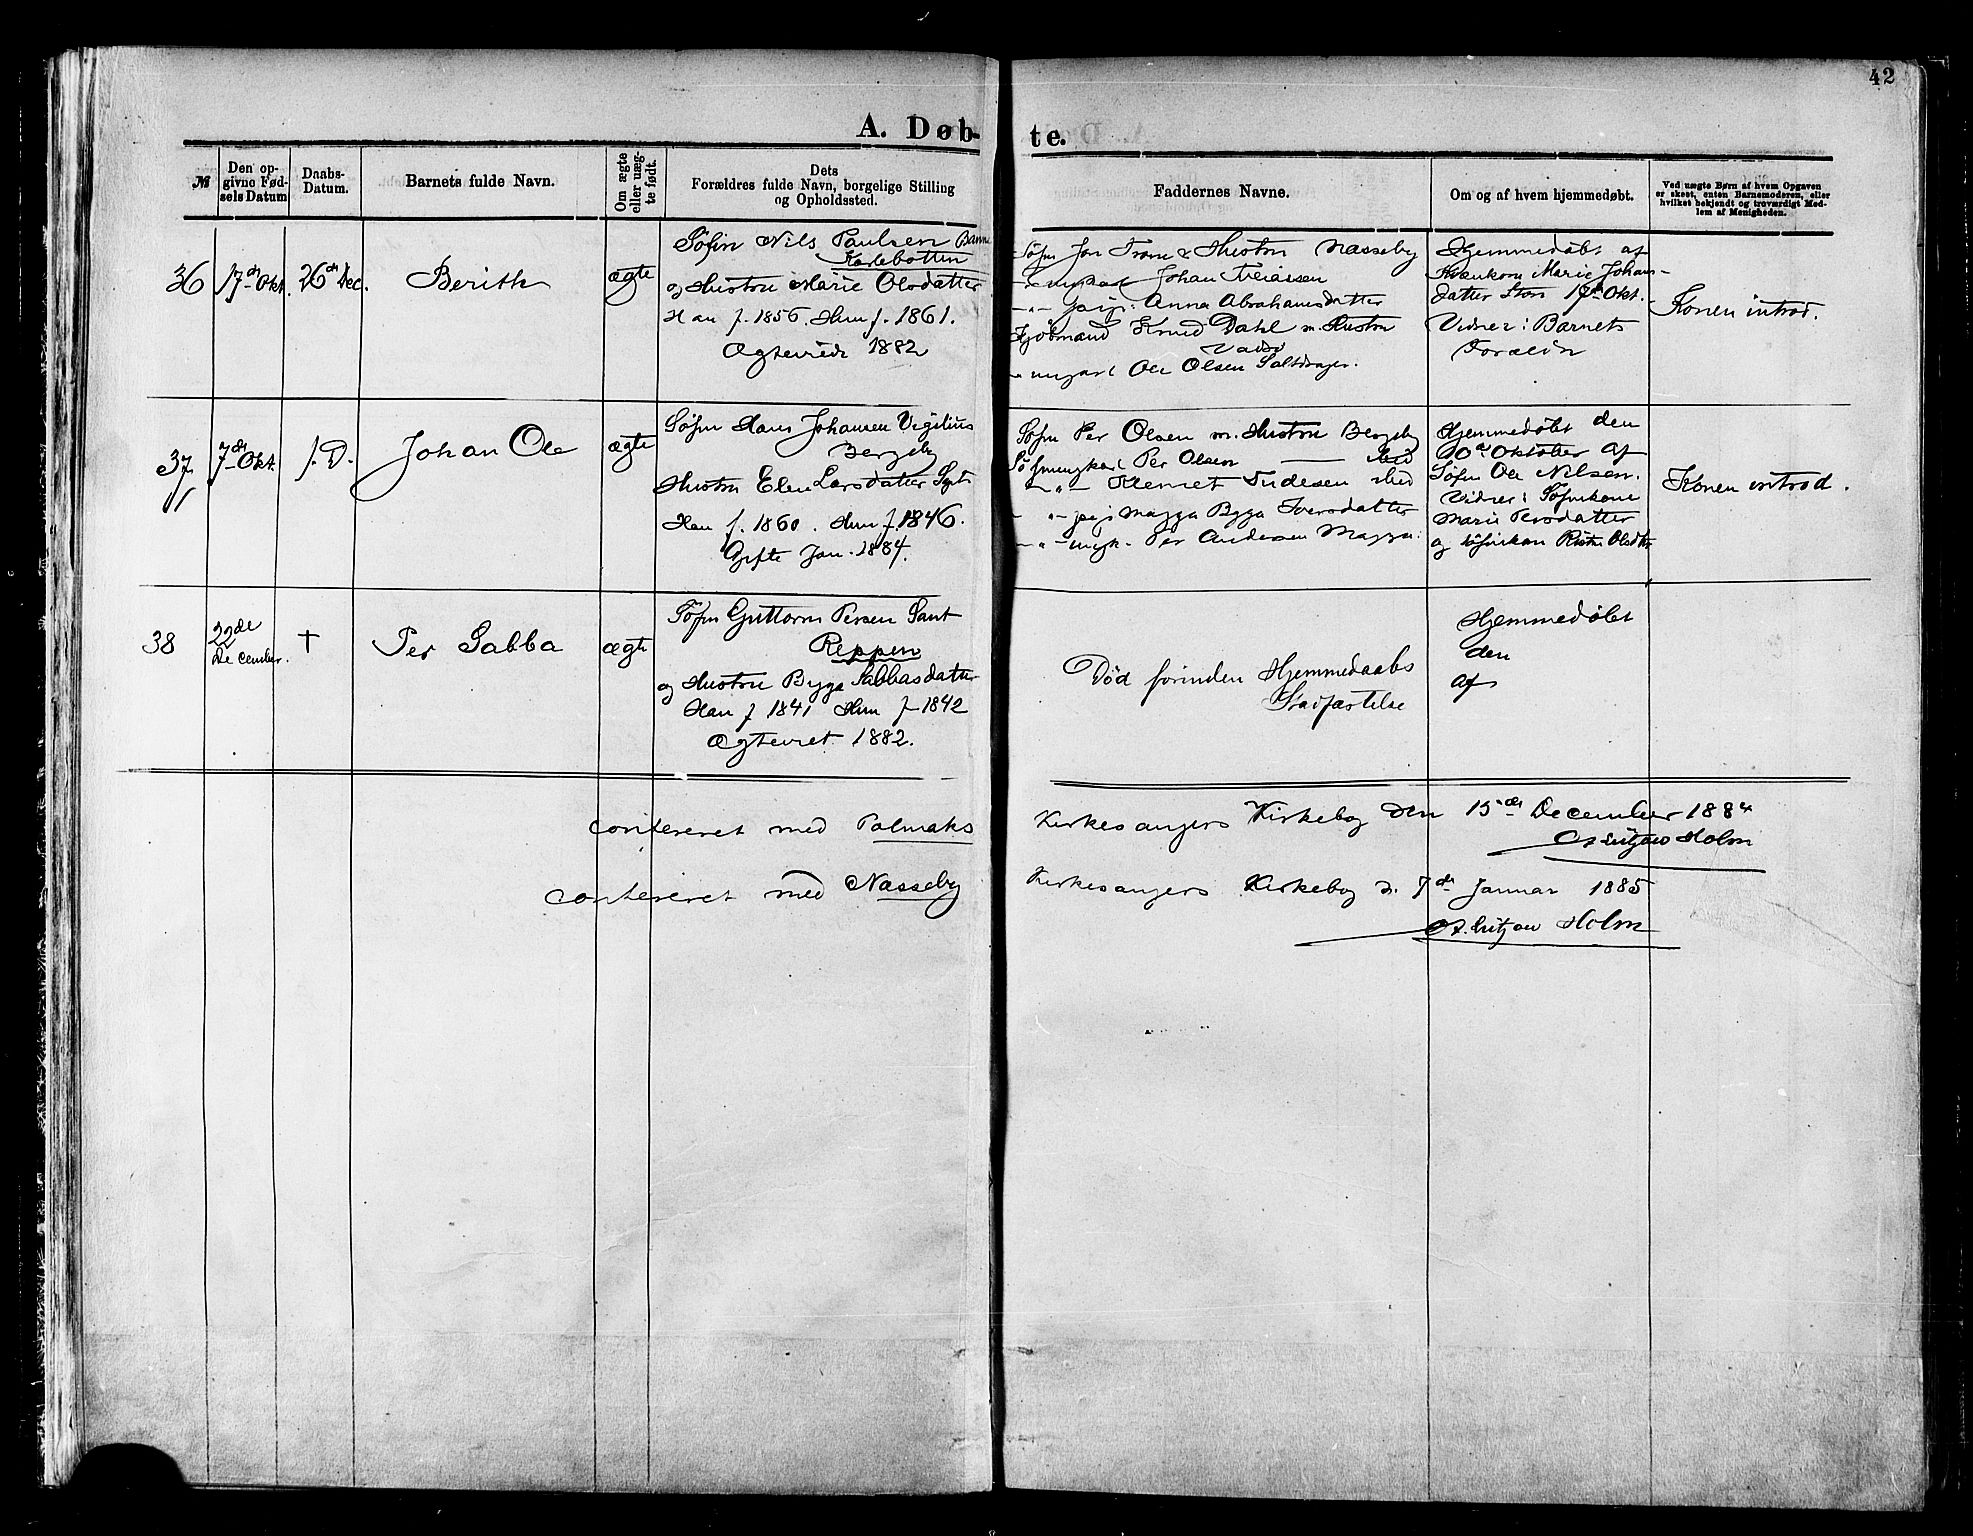 42
A. Døb-
te.
№
Den op-
givne Fød-
sels Datum
Daabs-
Datum.
Barnets fulde Navn.
Om ægte
eller uæg-
te født.
Dets
Forældres fulde Navn, borgelige Stilling
og Opholdssted.
Faddernes Navne.
Om og af hvem hjemmedøbt.
Ved uægte Børn af hvem Opgaven
er skeet, enten Barnemoderen, eller
hvilket bekjendt og troværdigt Med-
lem af Menigheden.
36
17de Okt.
26de Dec.
Berith
ægte
Søfin Nils Paulsen
Karlebotten
og Hustru Marie Olsdatter
Han f. 1856. Hun f. 1861.
Ægteviede 1882
Søfin Jon Hustru Næsseby
Johan
pige: Anna Abrahamsdatter
Knud Dahl m. Hustru
Vadsø
ungkarl Ole Olsen
Hjemmedøbt af
Marie Johans-
datter Okt.
Vidner: Barnets
Forældre
Konen introd.
37
7de Okt.
s. D.
Johan Ole
ægte
Søfin Hans Johansen Vigelius
Bergeby
Hustru Elen Larsdatter
Han f. 1860. Hun f. 1846.
Gifte Jan. 1884.
Søfin Per Olsen m. Hustru Bergeby
Søfinungkarl Per Olsen
- " - Klemet
- " - pige Magga Bygga Iversdatter
- " - ungk. Per Andersen Magga
Hjemmedøbt den
10de Oktober af
Søfin Ole Nilsen.
Vidner: Søfinkone
Marie Persdatter
og Søfinkon
Konen introd.
38
22de
December.
†
Per Sabba
ægte
Søfin Guttorm Persen
Reppen
og Hustru Byga Sabbasdatter
Han f 1841 Hun f 1842
Ægteviet 1882.
Død forinden Hjemmedaabs
Stadfæstelse
Hjemmedøbt
den
af
Confereret med Polmaks
Kirkesangers Kirkebog den 15de December 1884
Holm
Confereret med Næsseby
Kirkesangers Kirkebog d. 7de Januar 1885
Holm